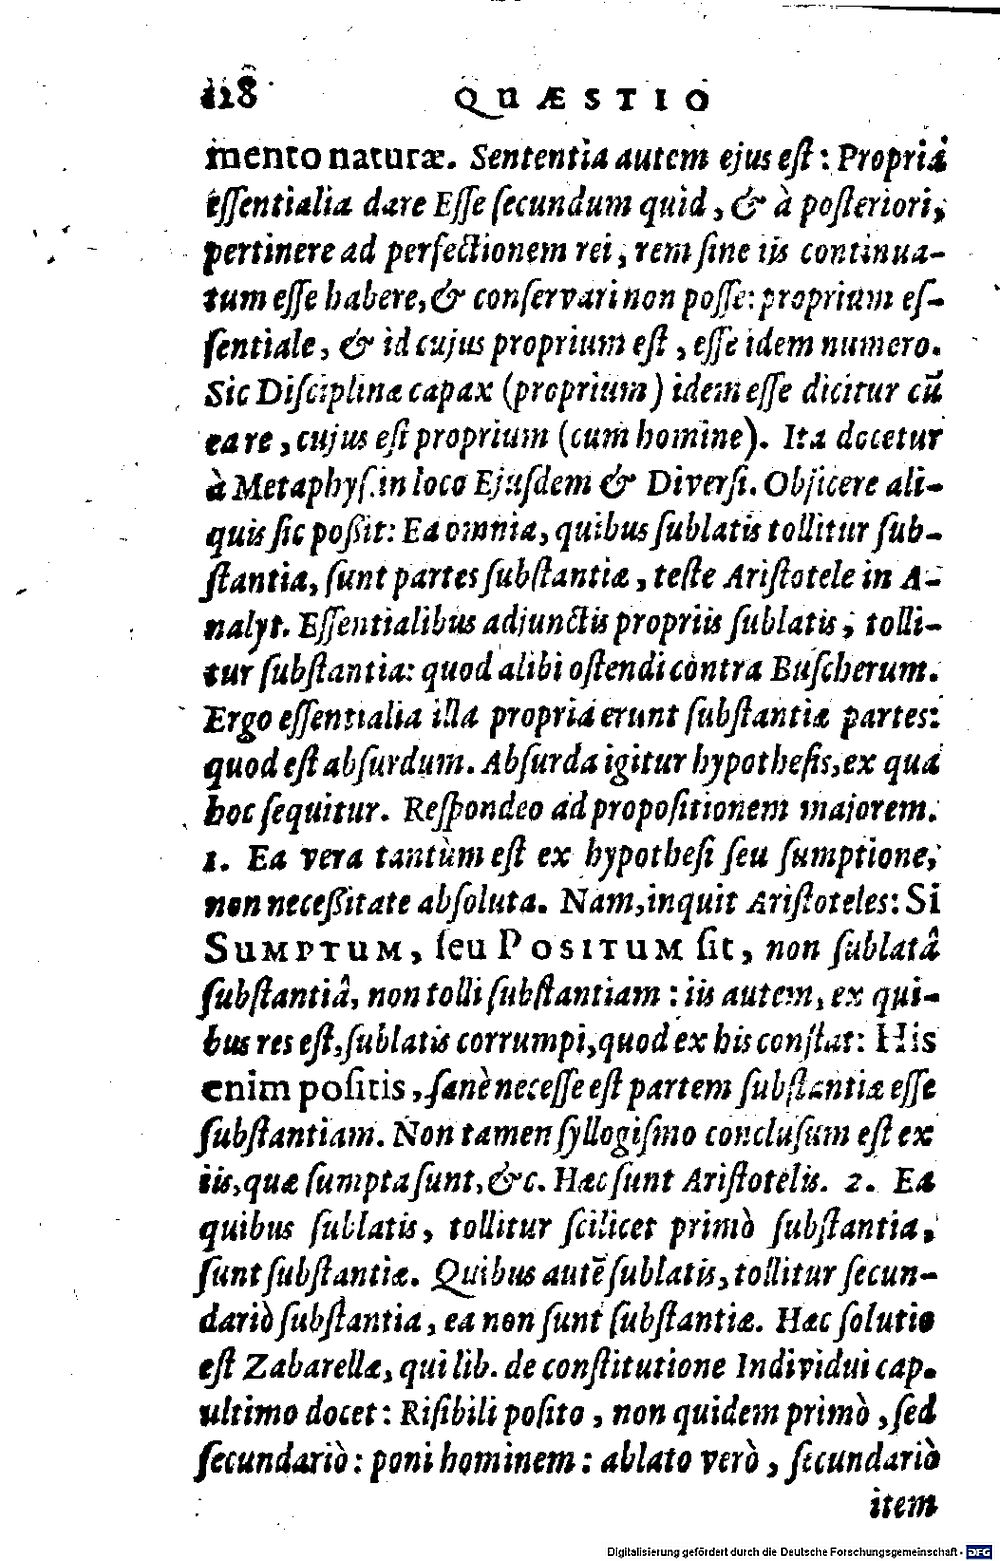 128 QUÆSTIO
mento naturæ. Sententia autem ejus est: Propria
essentialia dare Esse secundum quid, & à posteriori,
pertinere ad perfectionem rei, rem sine iis continua-
tum esse habere, & conservari non posse: proprium es-
sentiale, & id cujus proprium est, esse idem numero.
Sic Disciplinæ capax (proprium) idem esse dicitur cũ
ea re, cujus est proprium (cum homine). Ita docetur
à Metaphys. in loco Ejusdem & Diversi. Objicere ali-
quis sic poßit: Ea omnia, quibus sublatis tollitur sub-
stantia, sunt partes substantiæ, teste Aristotele in A-
nalyt. Essentialibus adjunctis propriis sublatis, tolli-
tur substantia: quod alibi ostendi contra Buscherum.
Ergo essentialia illa propria erunt substantiæ partes:
quod est absurdum. Absurda igitur hypothesis, ex qua
hoc sequitur. Respondeo ad propositionem majorem.
1. Ea vera tantùm est ex hypothesi seu sumptione,
non neceßitate absoluta. Nam, inquit Aristoteles: Si
SUMPTUM, seu POSITUM sit, non sublatâ
substantiâ, non tolli substantiam: iis autem, ex qui-
bus res est, sublatis corrumpi, quod ex his constat: His
enim positis, sanè necesse est partem substantiæ esse
substantiam. Non tamen syllogismo conclusum est ex
iis, quæ sumpta sunt, &c. Hæc sunt Aristotelis. 2. Ea
quibus sublatis, tollitur scilicet primò substantia,
sunt substantiæ. Quibus autẽ sublatis, tollitur secun-
dariò substantia, ea non sunt substantiæ. Hæc solutio
est Zabarellæ, qui lib. de constitutione Individui cap.
ultimo docet: Risibili posito, non quidem primò, sed
secundariò: poni hominem: ablato verò, secundariò
item
Digitalisierung gefördert durch die Deutsche Forschungsgemeinschaft - DFG